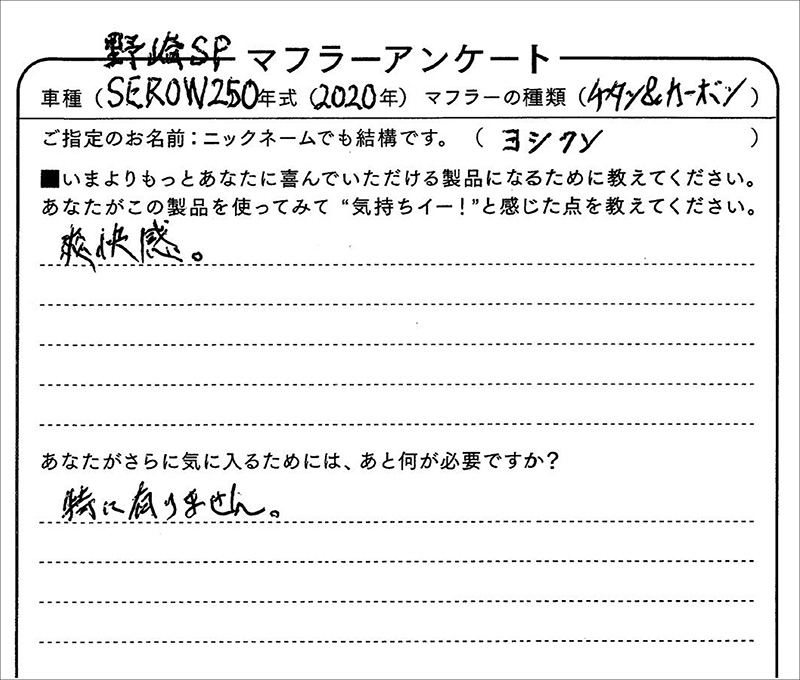 野崎SP マフラーアンケート
車種（SEROW250年式（2020年）マフラーの種類（チタン&カーボン）
ご指定のお名前：ニックネームでも結構です。（ヨシクン）
■いまよりもっとあなたに喜んでいただける製品になるために教えてください。
あなたがこの製品を使ってみて “気持ちイー！”と感じた点を教えてください。
爽快感。
あなたがさらに気に入るためには、あと何が必要ですか？
特に有りません。